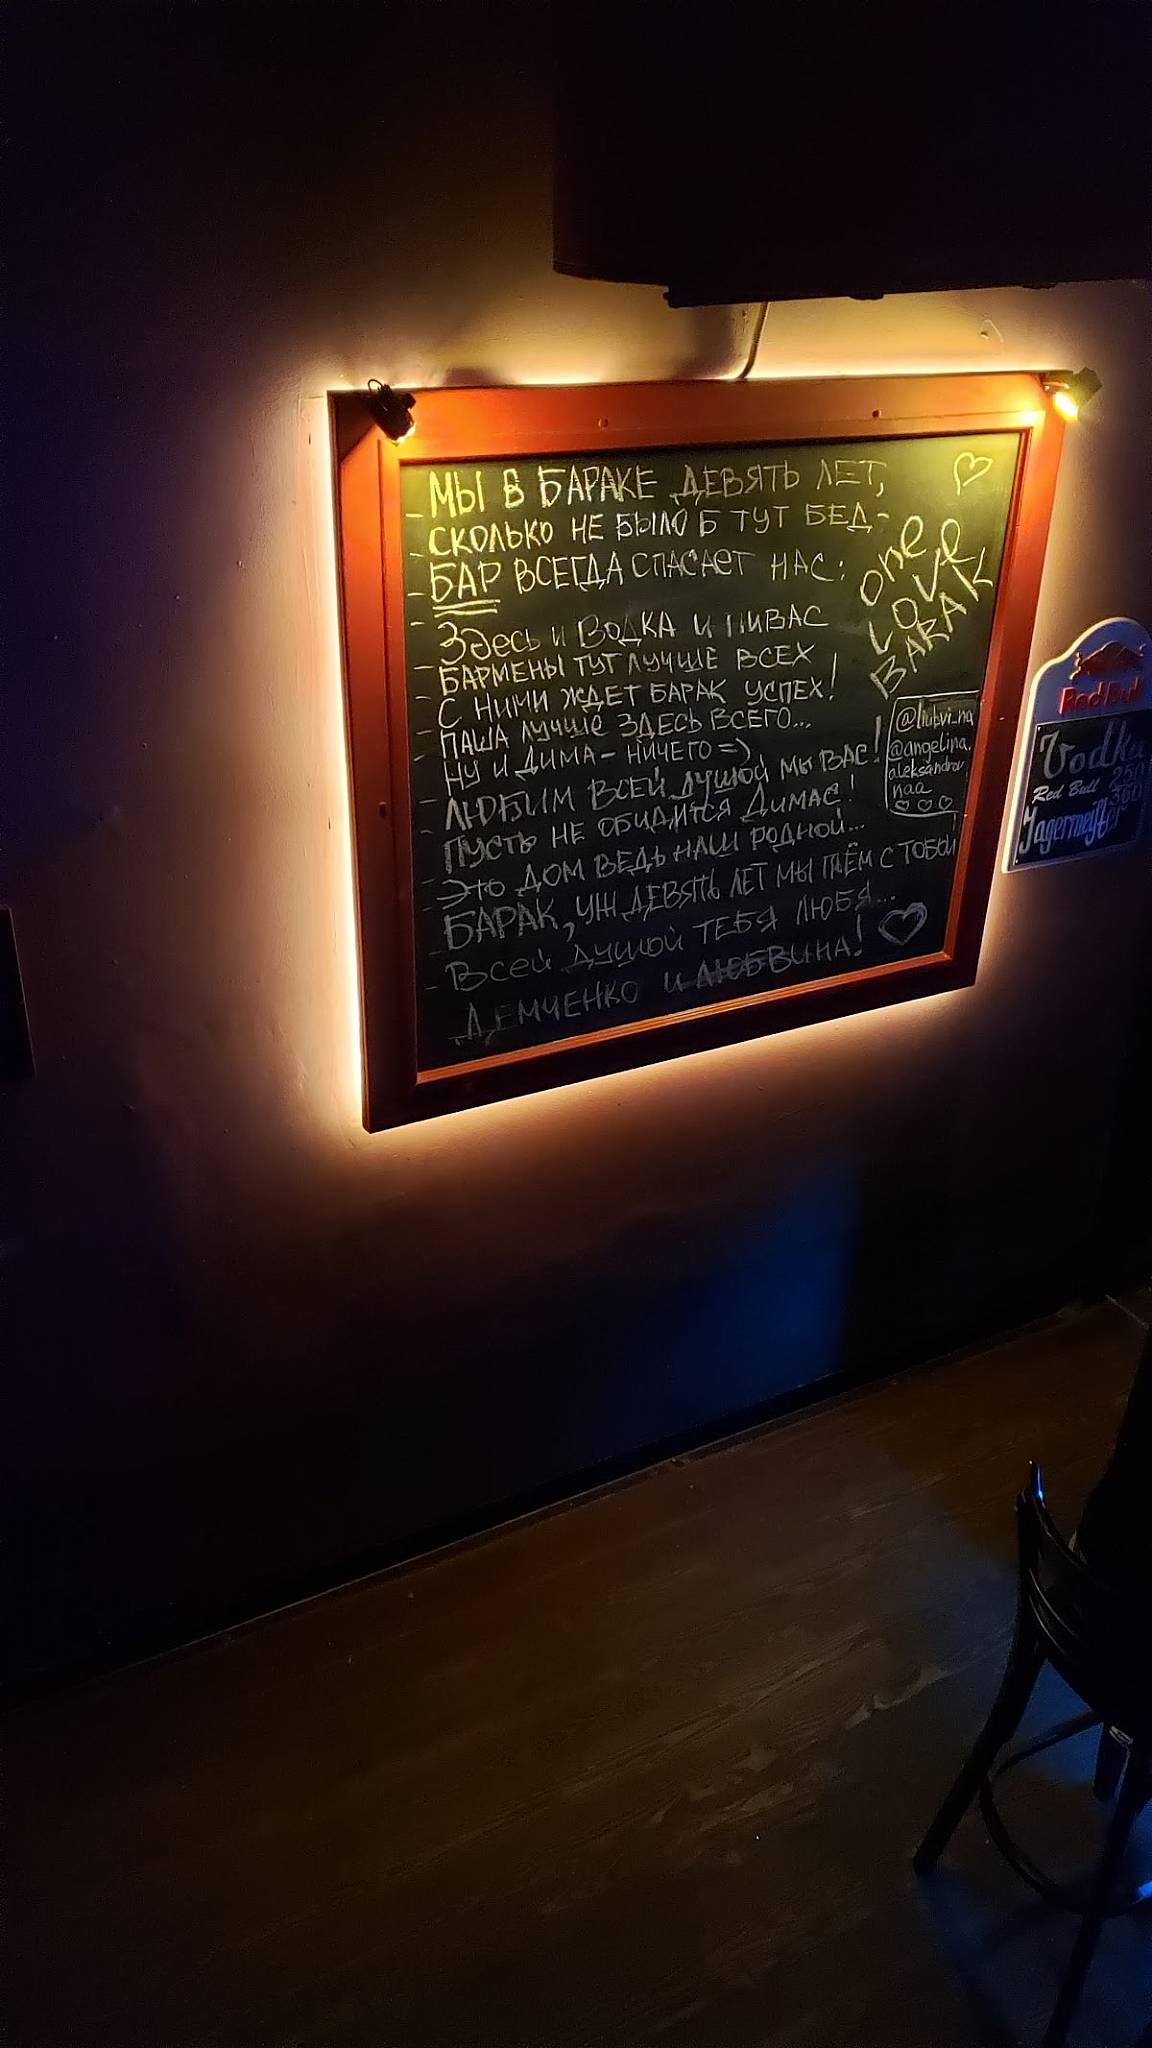 МЫ В БАРАКЕ ДЕВЯТЬ ЛЕТ,
СКОЛЬКО НЕ БЫЛО Б ТУТ БЕД -
БАР ВСЕГДА СПАСАЕТ НАС:
Здесь и ВОДКА И ПИВАС
БАРМЕНЫ ТУТ ЛУЧШЕ ВСЕХ
С НИМИ ЖДЕТ БАРАК УСПЕХ!
ПАША ЛУЧШЕ ЗДЕСЬ ВСЕГО...
НУ И ДИМА - НИЧЕГО =)
ЛЮБИМ ВСЕЙ ДУШОЙ МЫ ВАС!
ПУСТЬ НЕ ОБИДИТСЯ ДИМАС!
ЭТО ДОМ ВЕДЬ НАШ РОДНОЙ...
БАРАК, УЖ ДЕВЯТЬ ЛЕТ МЫ ПЬЁМ С ТОБОЙ!
ВСЕЙ ДУШОЙ ТЕБЯ ЛЮБЯ...
ДЕМЧЕНКО И ЛЮБВИНА!
one
LOVE
BARAK
@liubvi_na
@angelina.
aleksandrov
naa
Red Bull
Vodka
Red Bull 250
Jagermeister 360